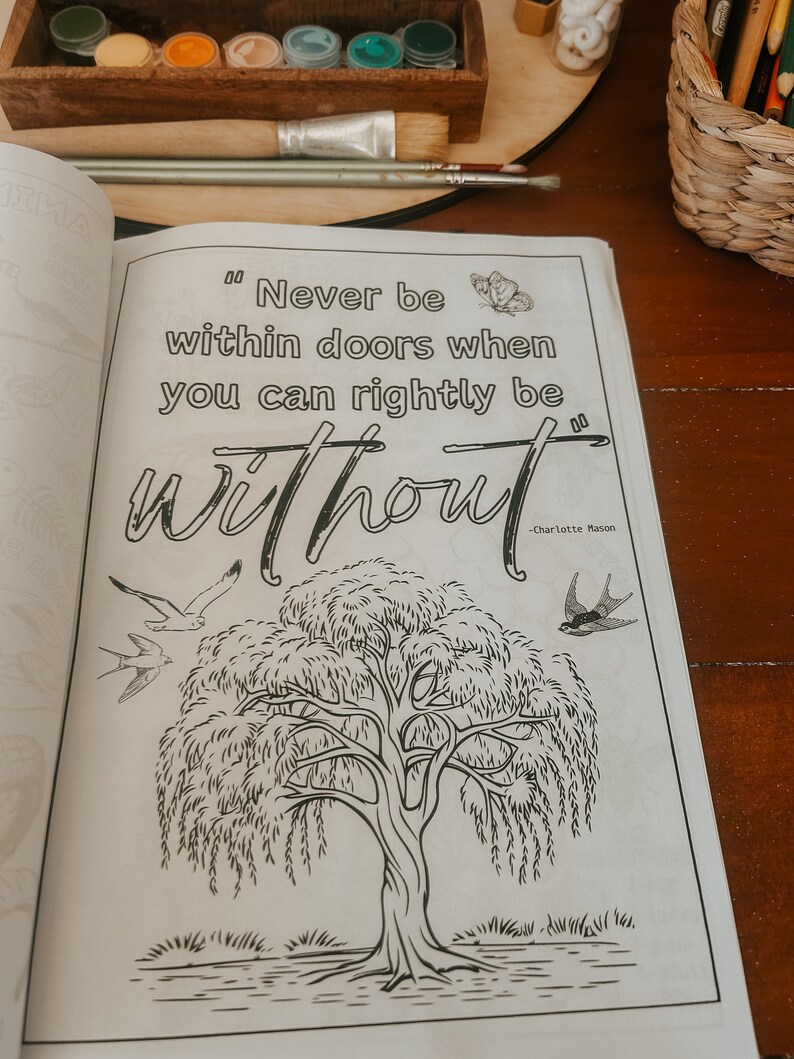 "Never be
within doors when
you can rightly be
without"
-Charlotte Mason